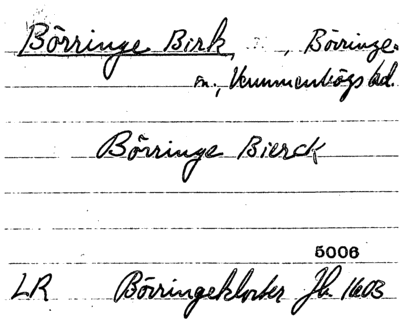 Börringe Birk, , Börringe
sn., Vemmenhögs hd.
Börringe Bierck
5006
LR Börringekloster Jb 1603